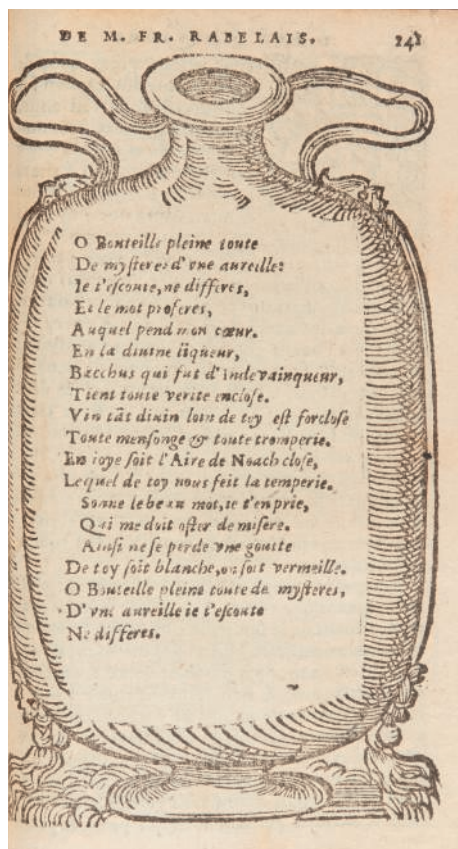 DE M. FR. RABELAIS.
241
O Bouteille pleine toute
De myſteres d'vne aureille:
Ie t'eſcoute, ne differes,
Et le mot proferes,
Auquel pend mon cœur.
En la diuine liqueur,
Bacchus qui fut d'inde vainqueur,
Tient toute verite encloſe.
Vin tãt diuin loin de toy eſt forcloſe
Toute menſonge & toute tromperie.
En ioye ſoit l'Aire de Noach cloſe,
Lequel de toy nous feit la temperie.
Sonne le beau mot, ie t'en prie,
Qui me doit oſter de miſere.
Ainſi ne ſe perde vne goutte
De toy ſoit blanche, ou ſoit vermeille.
O Bouteille pleine toute de myſteres,
D'vne aureille ie t'eſcoute
Ne differes.